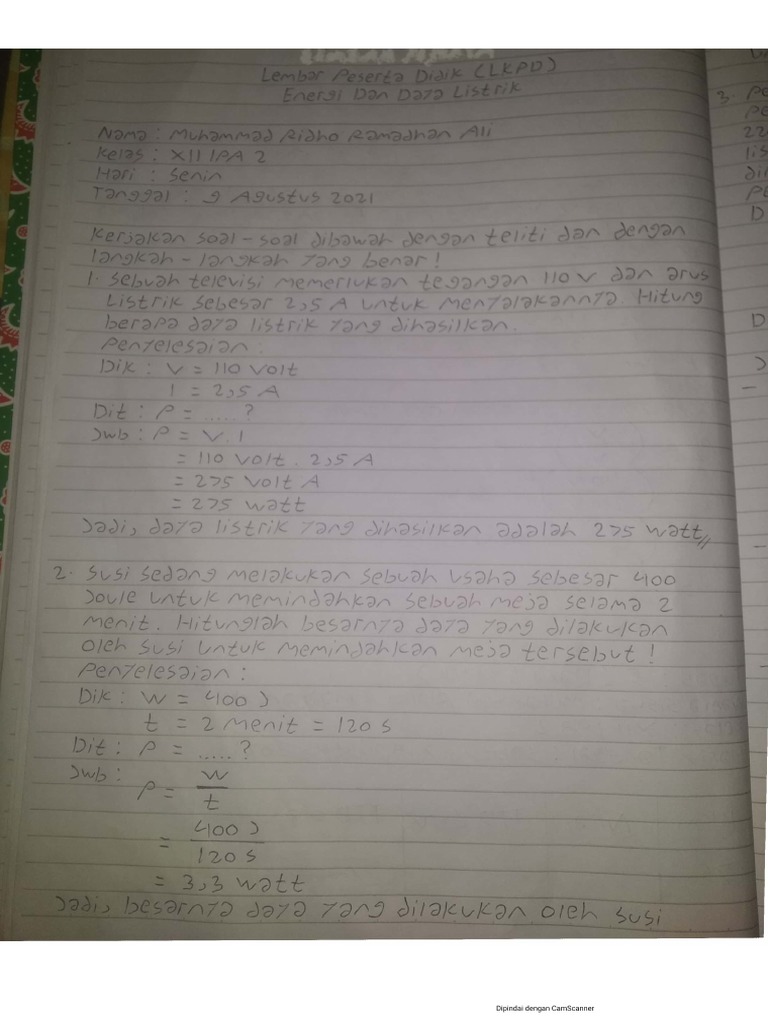 Lembar Peserta Didik (LKPD)
Energi Dan Daya Listrik
Nama : Muhammad Ridho Ramadhan Ali
Kelas : XII IPA 2
Hari : Senin
Tanggal : 9 Agustus 2021
Kerjakan soal-soal dibawah dengan teliti dan dengan
langkah-langkah yang benar!
1. Sebuah televisi memerlukan tegangan 110 V dan arus
Listrik sebesar 2,5 A untuk menyalakannya. Hitung
berapa daya listrik yang dihasilkan.
Penyelesaian :
Dik : V = 110 Volt
I = 2,5 A
Dit : P = ..... ?
Jwb : P = V . I
= 110 Volt . 2,5 A
= 275 Volt A
= 275 watt
Jadi, daya listrik yang dihasilkan adalah 275 watt //
2. Susi sedang melakukan sebuah usaha sebesar 400
Joule untuk memindahkan sebuah meja selama 2
menit. Hitunglah besarnya daya yang dilakukan
oleh susi untuk memindahkan meja tersebut !
Penyelesaian :
Dik : W = 400 J
t = 2 menit = 120 s
Dit : P = ..... ?
Jwb :
P = W
t
= 400 J
120 s
= 3,3 watt
Jadi, besarnya daya yang dilakukan oleh susi
3. Pe
Pe
22
lis
di
Pe
D
D
J
Dipindai dengan CamScanner